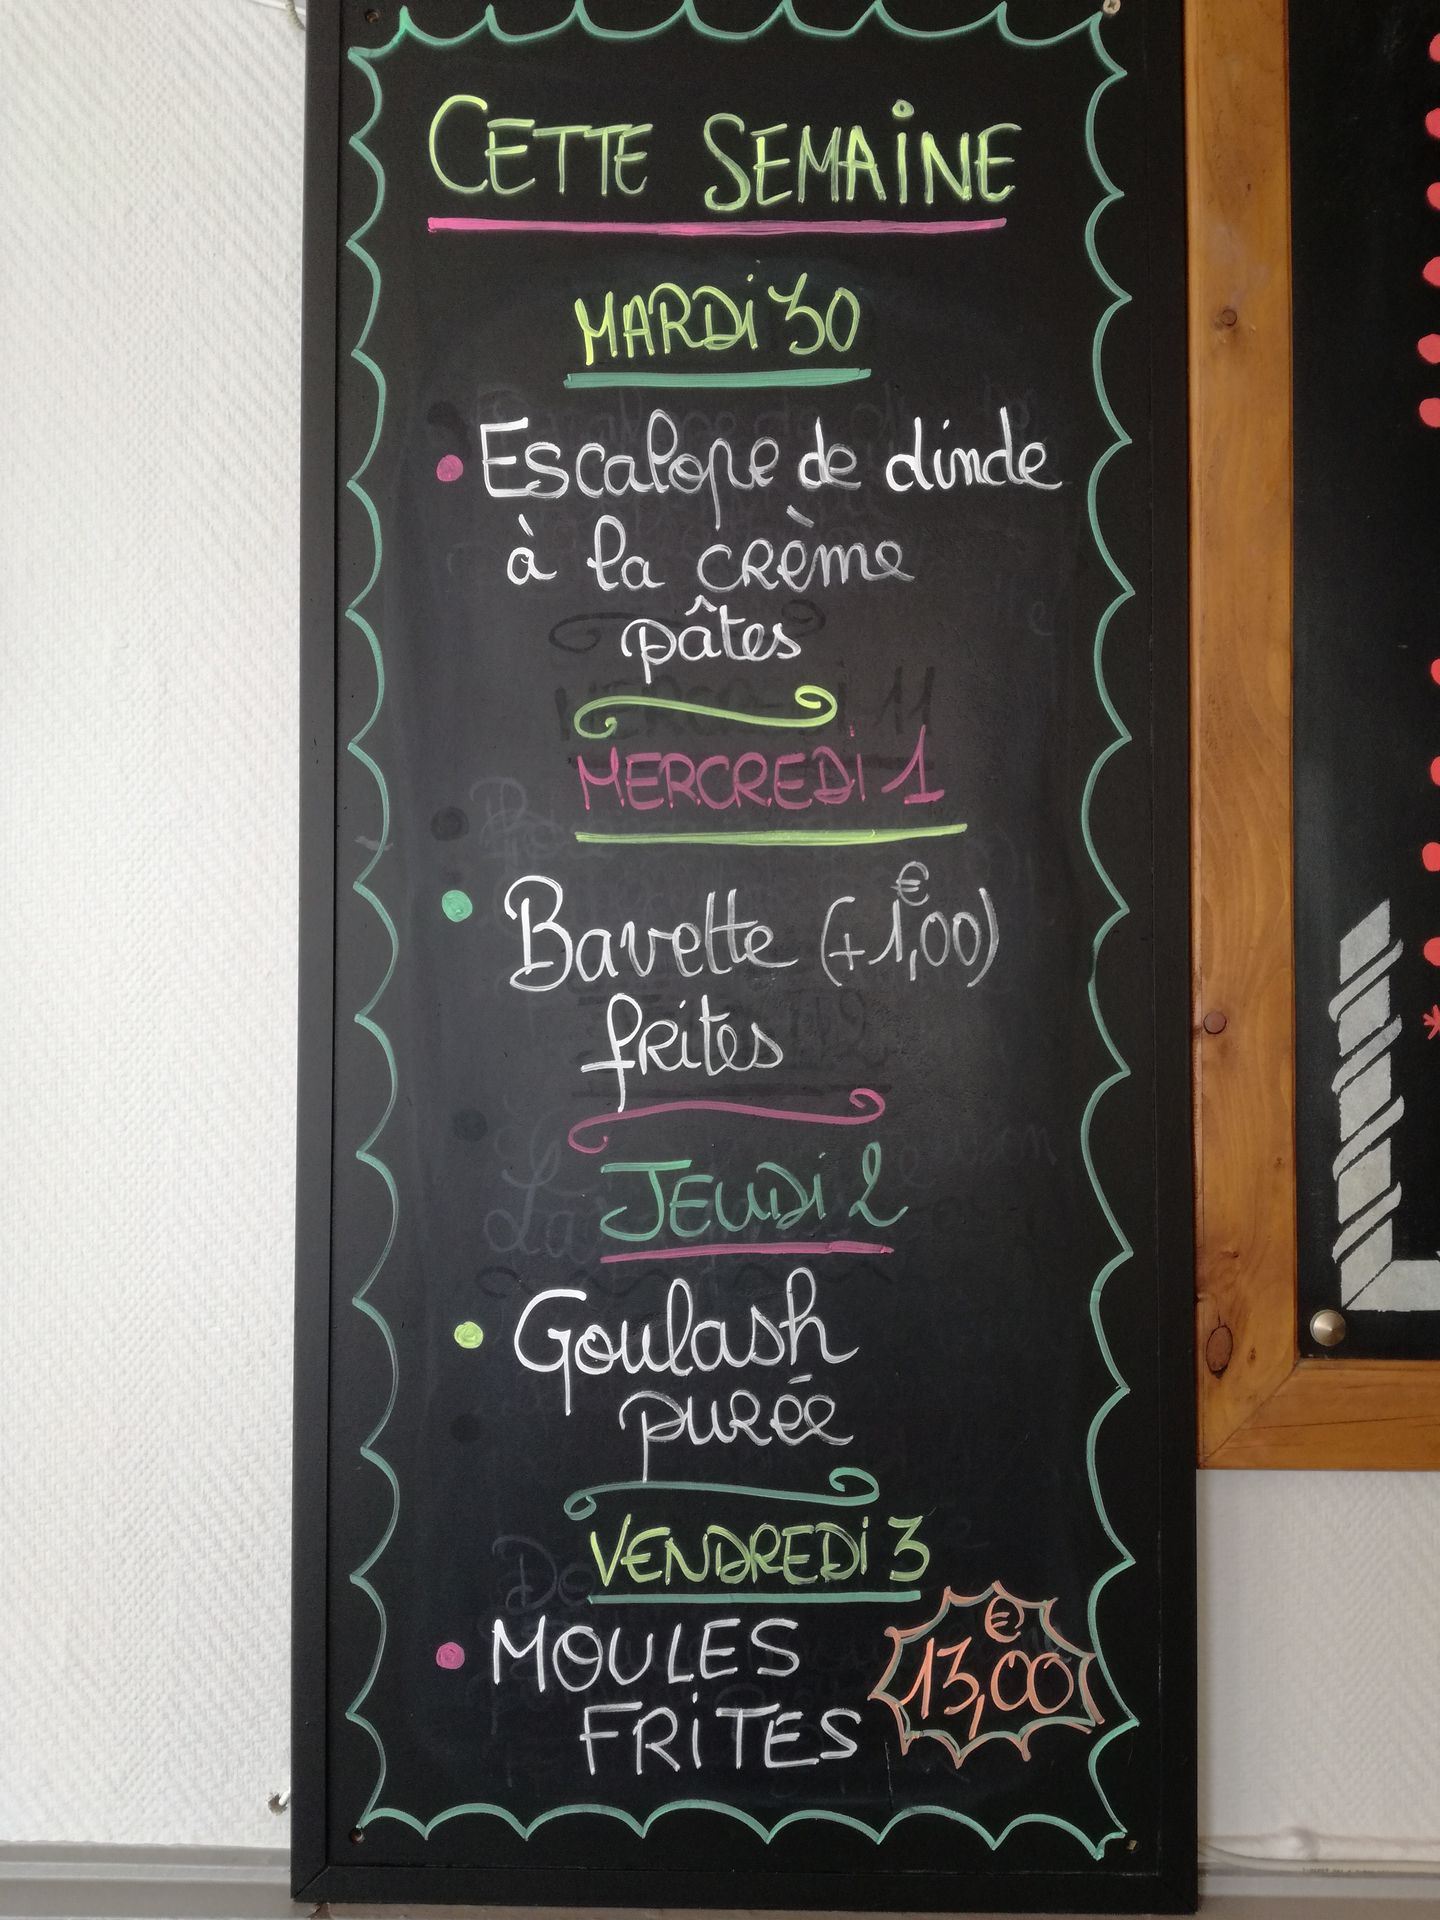 CETTE SEMAINE
MARDI 30
• Escalope de dinde
à la crème
pâtes
MERCREDI 1
• Bavette (+1,00€)
frites
JEUDI 2
• Goulash
purée
VENDREDI 3
• MOULES
FRITES
13,00€